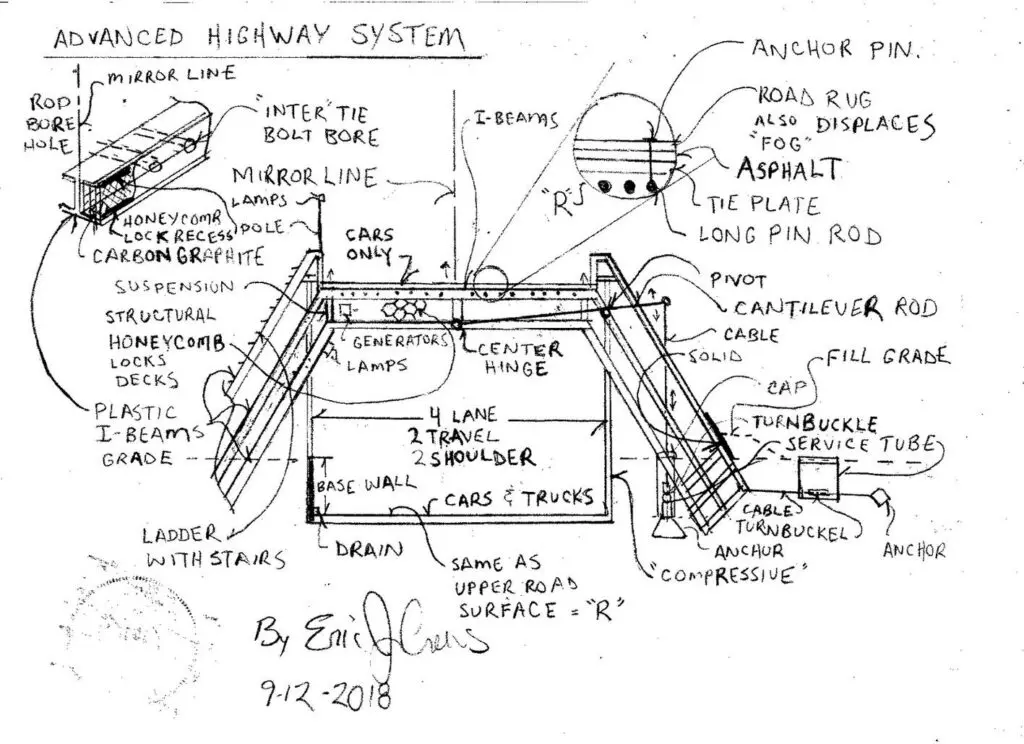 ADVANCED HIGHWAY SYSTEM
MIRROR LINE
ROD
BORE
HOLE
"INTER" TIE
BOLT BORE
HONEYCOMB
LOCK RECESS
CARBON GRAPHITE
MIRROR LINE
LAMPS
POLE
I-BEAMS
CARS
ONLY
ANCHOR PIN.
ROAD RUG
ALSO DISPLACES
"FOG"
ASPHALT
TIE PLATE
"R"
LONG PIN ROD
SUSPENSION
STRUCTURAL
HONEYCOMB
LOCKS
DECKS
PLASTIC
I-BEAMS
GRADE
GENERATORS
LAMPS
CENTER
HINGE
PIVOT
CANTILEVER ROD
CABLE
SOLID
FILL GRADE
CAP
TURNBUCKLE
SERVICE TUBE
4 LANE
2 TRAVEL
2 SHOULDER
BASE WALL
CARS & TRUCKS
CABLE
TURNBUCKEL
ANCHOR
ANCHUR
LADDER
WITH STAIRS
DRAIN
SAME AS
UPPER ROAD
SURFACE = "R"
"COMPRESSIVE"
By Eric J
9-12-2018